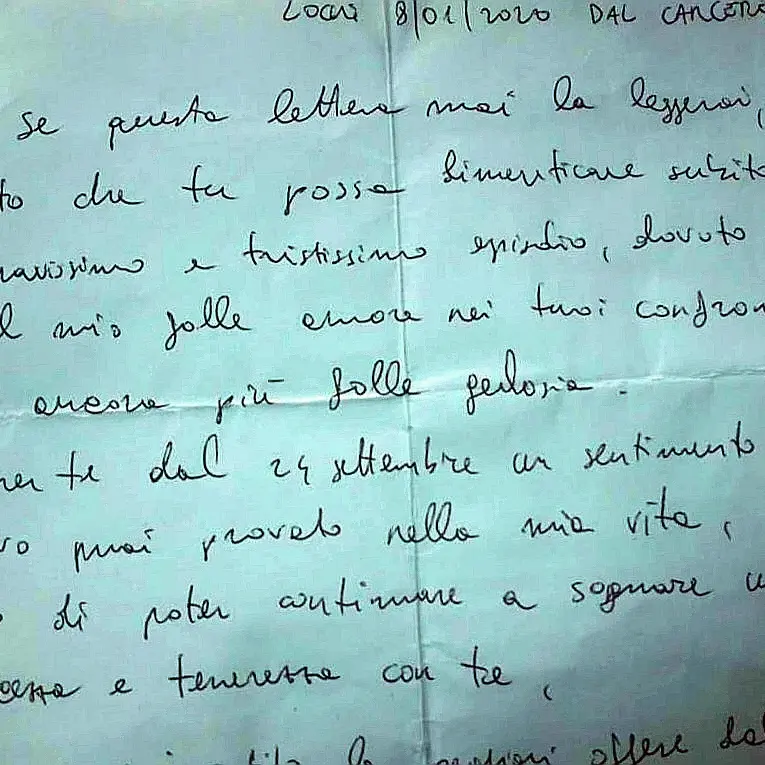 Locri 8/01/2020 DAL CARCERE
Se questa lettera mai la leggerai,
to che tu possa dimenticare subito
ravissimo e tristissimo episodio, dovuto
l mio folle amore nei tuoi confron
ancora più folle gelosia.
per te dal 24 settembre un sentimento
vo mai provato nella mia vita,
di poter continuare a sognare u
e tenerezza con te,
offese dal